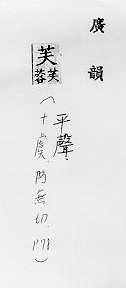 廣韻
芙芙蓉
平聲.
(十虞.防無切.